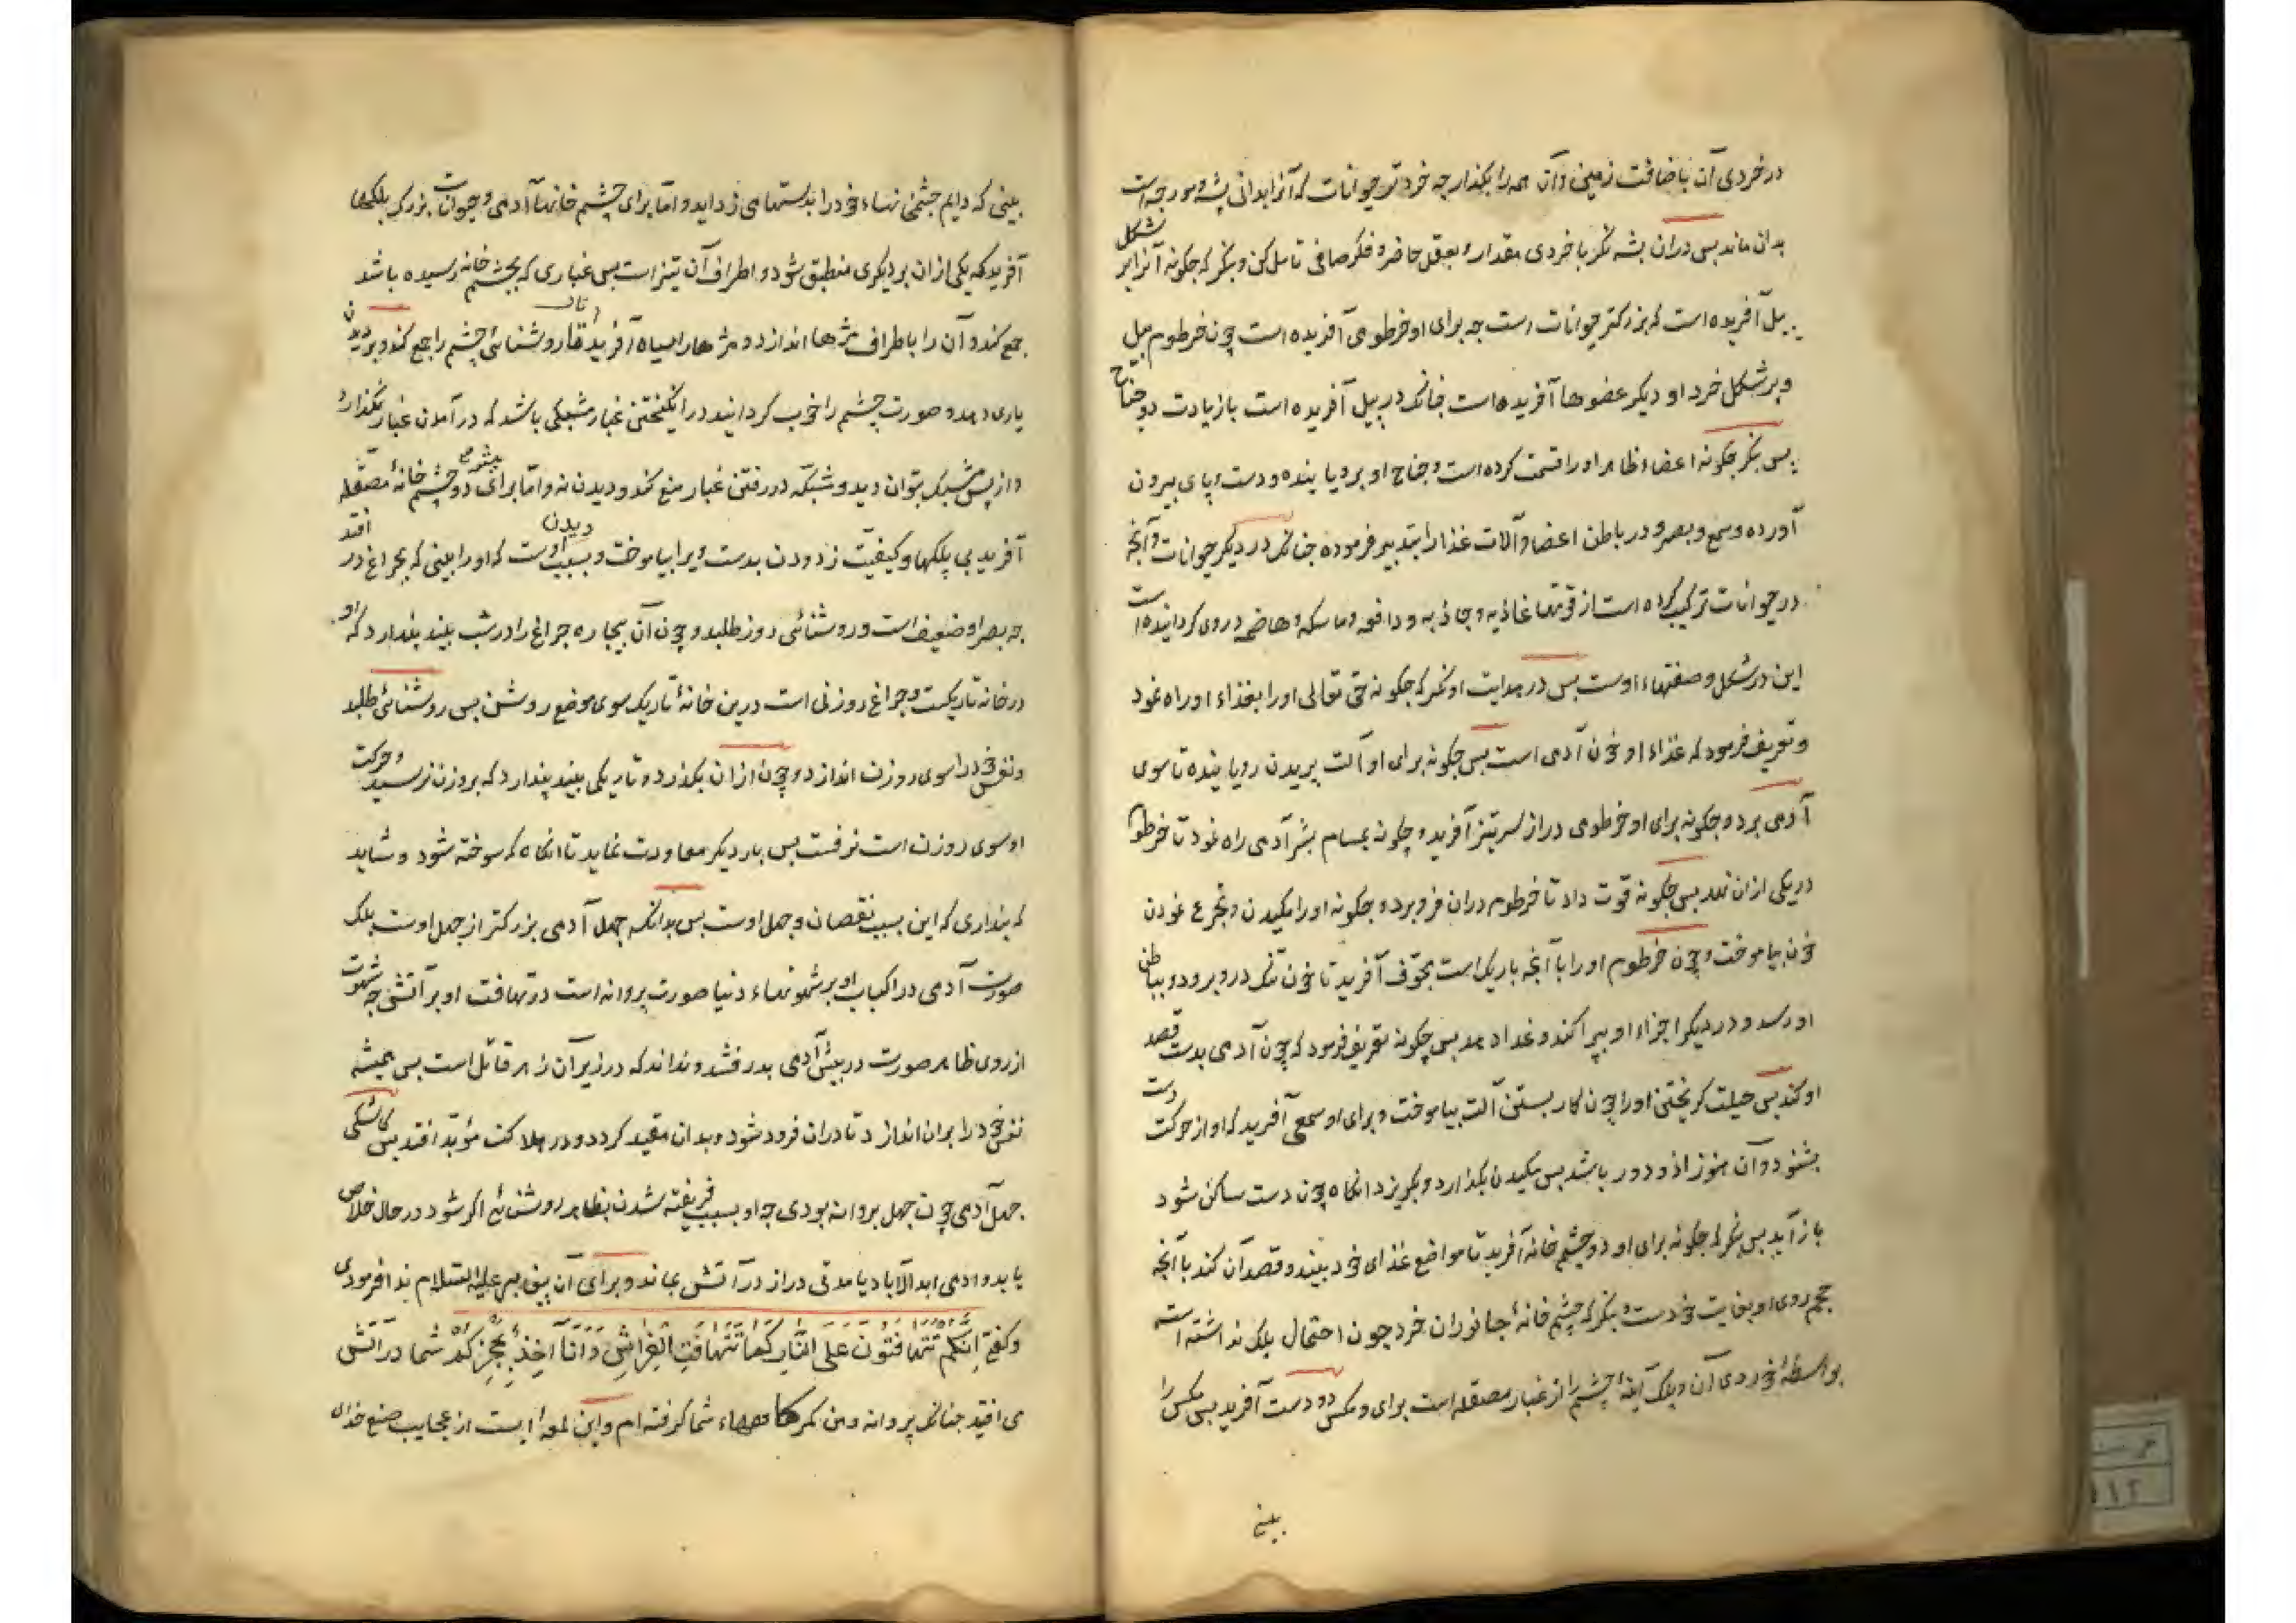 در خردی آن باضافت زمین و آن همه را بگذار چه خردتر حیوانات که آنرا بدانی پشه و مورچه است
بدان ماند بس دران پشه نگر با خردی مقدار و بعقل حاضر و فکر صافی تامل کن و بنگر که چگونه آنرا بر شکل
پیل آفریده است که بزرکتر حیوانات است چه برای او خرطومی آفریده است چون خرطوم پیل
و بر شکل خرد او دیکر عضوها آفریده است چنانک در پیل آفریده است با زیادت دو جناح
پس بنکر چکونه اعضاء ظاهر او را قسمت کرده است و جناح او برویانیده و دست و پای بیرون
آورده و سمع و بصر و در باطن اعضا و آلات غذا را تدبیر فرموده چنانک در دیکر حیوانات و آنچه
در حیوانات ترکیب کرده است از قوتها غاذیه و جاذبه و دافعه و ماسکه و هاضمه در وی کردانیده است
این در شکل و صفتهاء اوست بس در هدایت او نکر که چکونه حق تعالی او را بغذاء او راه نمود
و تعریف فرمود که غذاء او خون آدمی است بس چکونه برای او آلت پریدن رویانیده تا سوی
آدمی برد و چکونه برای او خرطومی دراز سرتیز آفرید و چکونه بمسام بشر آدمی راه نمود تا خرطوم
در یکی ازان نهد بس چکونه قوت داد تا خرطوم دران فرو برد و چکونه او را مکیدن و تجرع نمودن
خون بیاموخت و چون خرطوم او را با آنچه باریک است مجوف آفرید تا خون تنک درو برود و بباطن
او رسد و در دیکر اجزاء او بپراکند و غذا دهد بس چکونه تعریف فرمود که چون آدمی بدست قصد
او کند بس حیلت کریختن او را چون کار بستن آلت بیاموخت و برای او سمعی آفرید که او از حرکت دست
بشنود و آن هنوز ازو دور باشد بس مکیدن بکذارد و بکریزد آنکاه چون دست ساکن شود
باز آید بس بنکر که چکونه برای او دو چشم خانه آفرید تا مواضع غذای خود بیند و قصد آن کند با آنچه
حجم روی او بغایت خردست و بنکر که چشم خانهٔ جانوران خرد چون احتمال پلک نداشته است
بواسطهٔ خردی آن و پلک آینهٔ چشم را از غبار مصقله است برای و مکس دو دست آفرید بس مکس را
بینی
بینی که دایم چشم خانهاء خود را بدستها می زداید و اما برای چشم خانهاء آدمی و حیوانات بزرک پلکها
آفرید که یکی ازان بر دیکری منطبق شود و اطراف آن تیز است بس غباری که بچشم خانه رسیده باشد
جمع کند و آن را باطراف مژها اندازد و مژها را سیاه آفرید تا روشنائی چشم را جمع کند و بر دیدن
یاری دهد و صورت چشم را خوب کرداند در انکیختن غبار مشبکی باشد که در آمدن غبار نکذارد
و از پس مشبک بتوان دید و شبکه در رفتن غبار منع کند و دیدن نه و اما برای پشه دو چشم خانهٔ مصقله
آفرید بی پلکها و کیفیت زدودن بدست ویرا بیاموخت و بسبب اوست که او را بینی که بچراغ در افتد
چه بصر او ضعیف است و روشنائی روز طلبد و چون آن بیچاره چراغ را در شب بیند پندارد که او
در خانه تاریکست و چراغ روزنی است درین خانهٔ تاریک سوی موضع روشن بس روشنائی طلبد
و نفس خود را سوی روزن اندازد و چون ازان بکذرد و تاریکی بیند پندارد که بروزن نرسید و حرکت
او سوی روزن است نرفت بس بار دیکر معاودت نماید تا آنکاه که سوخته شود و شاید
که پنداری که این بسبب نقصان و جهل اوست بس بدانکه جهل آدمی بزرکتر از جهل اوست بلک
صورت آدمی در اکباب او بر شهوتهاء دنیا صورت پروانه است در تهافت او بر آتش چه شهوت
از روی ظاهر صورت در پیش آدمی بدرفشد و نداند که در زیر آن زهر قاتل است بس همیشه
نفس خود را بران اندازد تا دران فرود شود و بدان مقید کردد و در هلاکت مؤبد افتد بس کاشکی
جهل آدمی چون جهل پروانه بودی چه او بسبب فریفته شدن بظاهر روشنائی اکر بسوزد در حال خلاص
یابد و آدمی ابد الآباد یا مدتی دراز در آتش بماند و برای آن پیغامبر علیه السلام ندا فرمودی
و کفتی اِنَّکُم تَتَهافَتُونَ عَلَی النّارِ کَما تَتَهافَتُ الفَراشُ وَ اَنَا آخِذٌ بِحُجَزِکُم شما در آتش
می افتید چنانک پروانه و من کمرکاههاء شما کرفته ام و این لمعهٔ ایست از عجایب صنع خدای